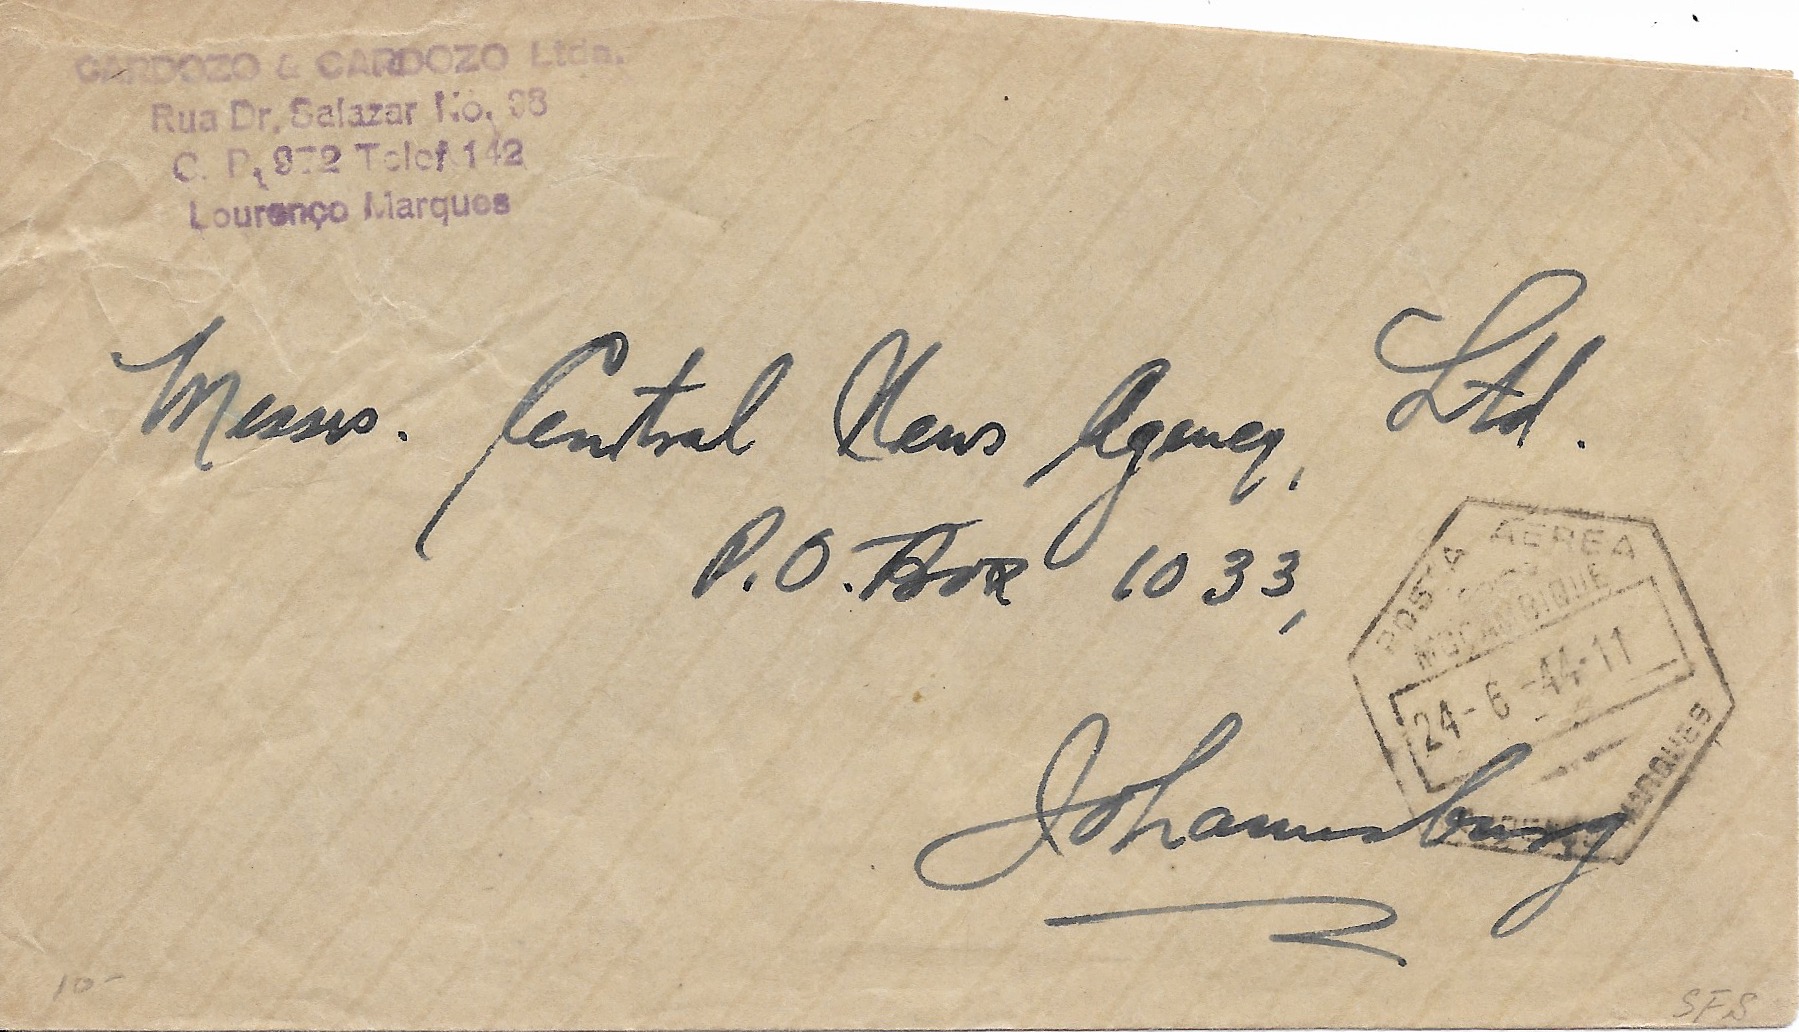 CARDOZO & CARDOZO Ltda.
Rua Dr. Salazar No. 98
C. P. 972 Telef. 142
Lourenço Marques
Messrs. Central News Agency, Ltd.
P.O. Box 1033,
Johannesburg
POSTA AEREA
MOÇAMBIQUE
24-6-44-11
LOURENÇO MARQUES
10-
SFS